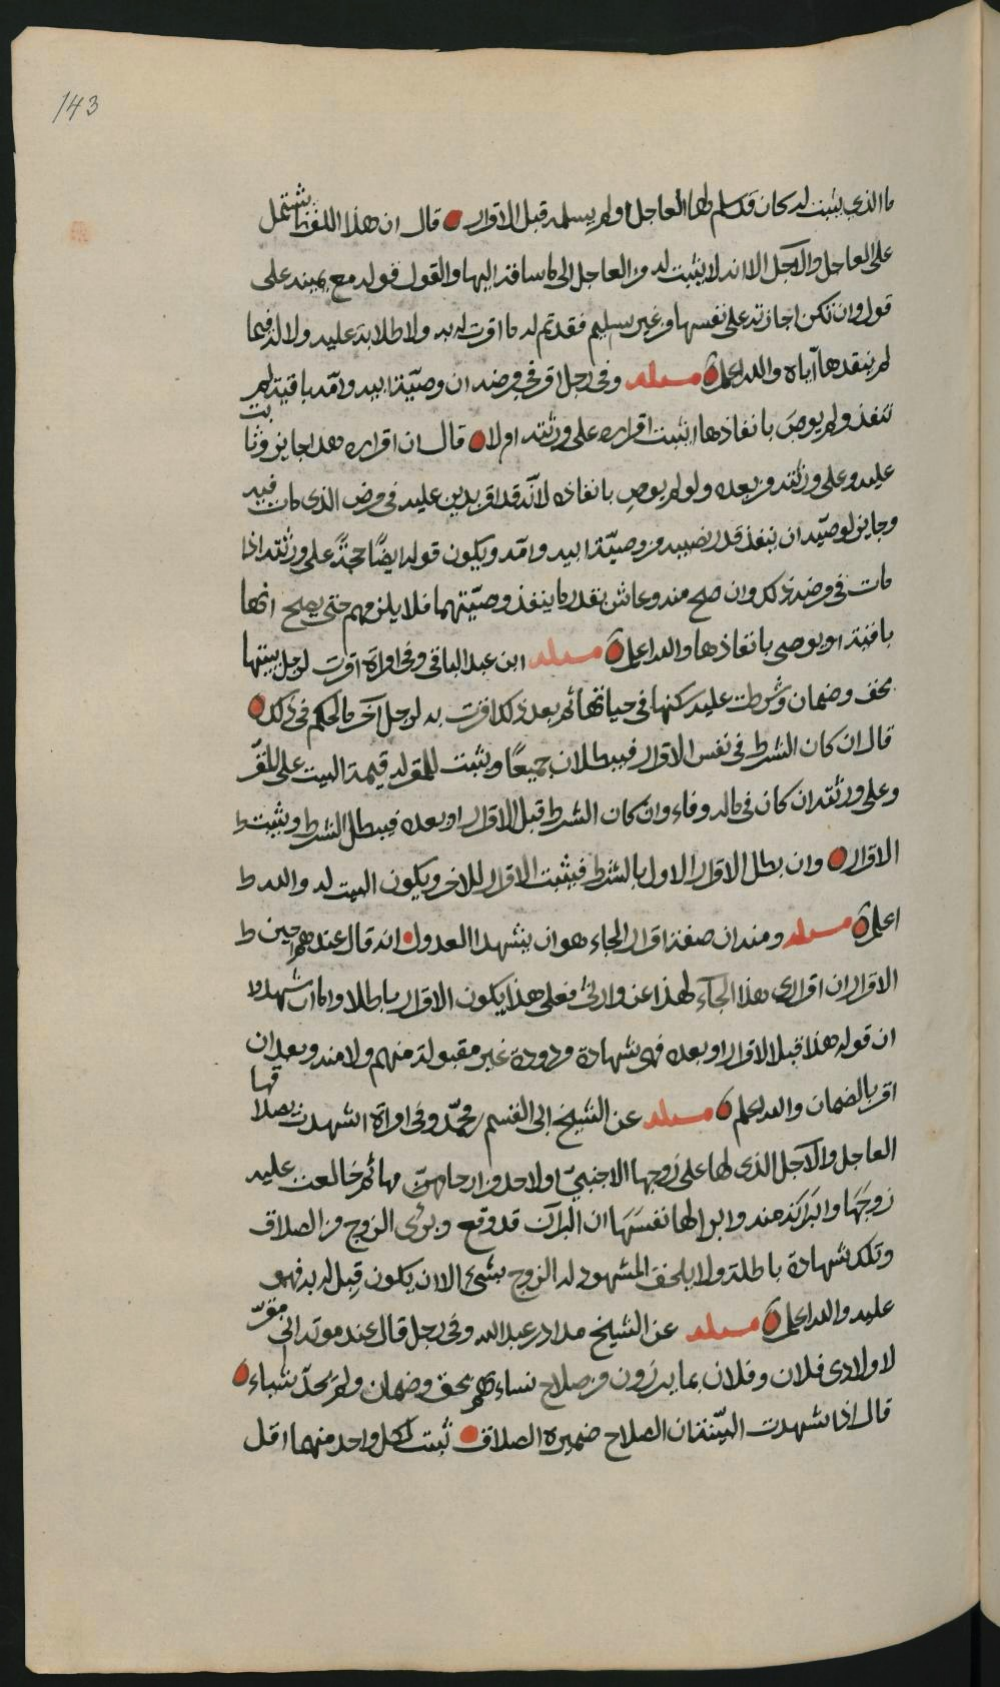 143
ما الذي يثبت له كان قد سلم لها العاجل او لم يسلمه قبل الاقرار قال ان هذا اللفظ يشتمل
على العاجل والآجل الا انه لا يثبت له من العاجل الى ما ساقه اليها والقول قوله مع يمينه على
قول وان تكن اجازته على نفسها من غير تسليم فقد تم له ما اقرت له به ولا طلابة عليه ولا له فيما
لم ينقدها اياه والله اعلم مسئله وفي رجل اقر في مرضه ان وصيّة ابيه وامّه باقية لم
تنفذ ولم يوصَ بانفاذها ايثبت اقراره على ورثته ام لا قال ان اقراره هذا جايز وثابت
عليه وعلى ورثته من بعده ولو لم يوصِ بانفاذه لانّه قد اقر بدين عليه في مرض الذي مات فيه
وجايز لوصيّه ان ينفذ قدر نصيبه من وصيّة ابيه وامّه ويكون قوله ايضًا حجةً على ورثته اذا
مات في مرضه ذلك وان صح منه وعاش بقدر ما ينفذ وصيّتهما فلا يلزمهم حتى يصح انها
باقية او يوصي بانفاذها والله اعلم مسئله ابن عبد الباقي وفي امراة اقرت لرجل ببيتها
بحق وضمان وشرطت عليه سكنها في حياتها ثم بعد ذلك اقرت به لرجل آخر ما الحكم في ذلك
قال ان كان الشرط في نفس الاقرار فيبطلان جميعًا ويثبت للمقر له قيمة البيت على المقّر
وعلى ورثته ان كان في ماله وفاء وان كان الشرط قبل الاقرار او بعده فيبطل الشرط ويثبت
الاقرار وان بطل الاقرار الاول بالشرط فيثبت الاقرار للاخر ويكون البيت له والله
اعلم مسئله ومنه ان صفة اقرار الجاء هو ان يشهدا العدول انه قال عندهم حين
الاقرار ان اقراري هذا الجآء لهذا عن وارثي فعلى هذا يكون الاقرار باطلا واما ان شهدوا
ان قوله هذا قبل الاقرار او بعده فهي شهادة مردودة غير مقبولة منهم ولا منه وبعد ان
اقر بالضمان والله اعلم مسئله عن الشيخ ابي القسم بن محمّد وفي امراة اشهدت بصداقها
العاجل والآجل الذي لها على زوجها الاجنبيّ او لاحد من ارحامها ثم خالعت عليه
زوجَهَا وابرَاته منه وابرا لها نفسَهَا ان البرآن قد وقع وبرئ الزوج من الصداق
وتلك شهادة باطلة ولا يلحق المشهود له الزوج بشيء الا ان يكون قِبل له به فهو
عليه والله اعلم مسئله عن الشيخ مداد بن عبد الله وفي رجل قال عند موته اني مقرّ
لاولادي فلان وفلان بما يبرزون من صلاح نساءهم بحق وضمان ولم يحدّ بشياء
قال اذا شهدت البيّنة ان الصلاح ضميره الصداق ثبت لكل واحد منهما اقل